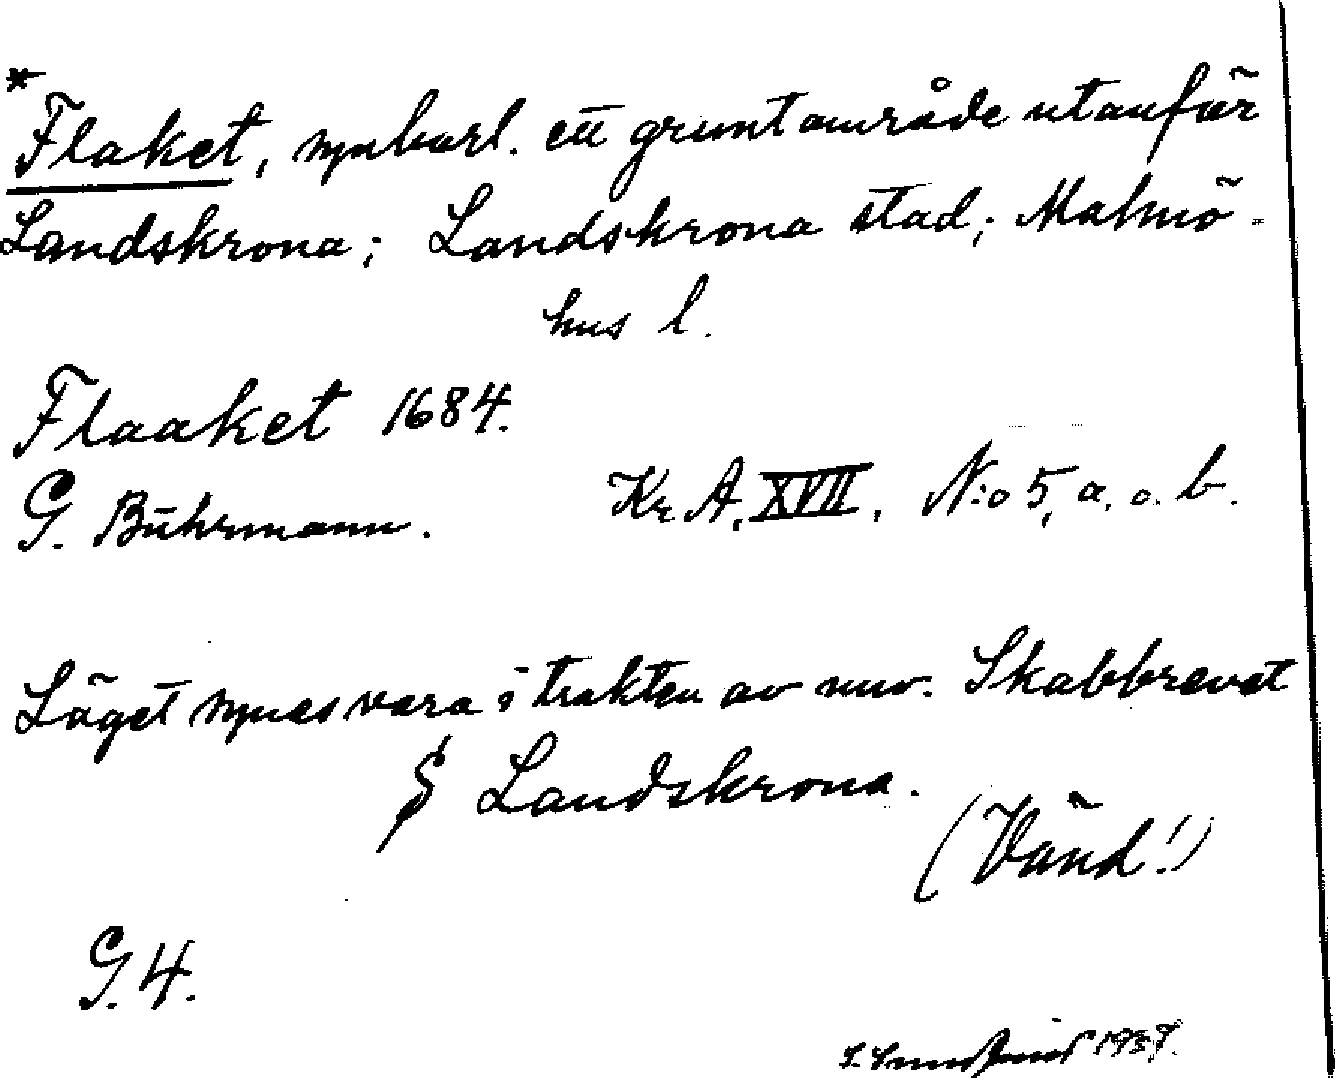 * Flaket, uppbarl. ett gruntområde utanför
Landskrona; Landskrona stad; Malmö-
hus l.
Flaaket 1684.
G. Buhrmann. Kr. A. XVII, N:o 5, a. o. b.
Läget synes vara i trakten av nuv. Skabbrevet
§ Landskrona.
(Vänd!)
G. 4.
1937.